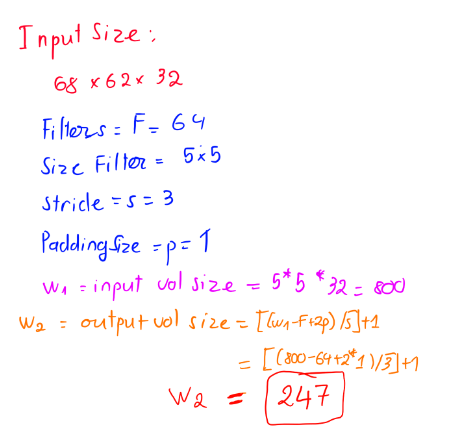 Input Size:
68 x 62 x 32
Filters = F = 64
Size Filter = 5x5
stride = s = 3
Padding size = p = 1
W1 = input vol size = 5*5*32 = 800
W2 = output vol size = [(W1-F+2p)/S]+1
= [(800-64+2*1)/3]+1
W2 = 247